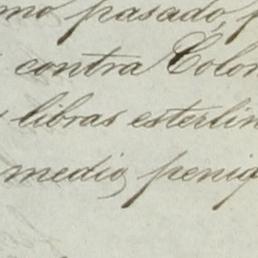 mo pasado, p
contra Colon
libras esterlin
medio peniq